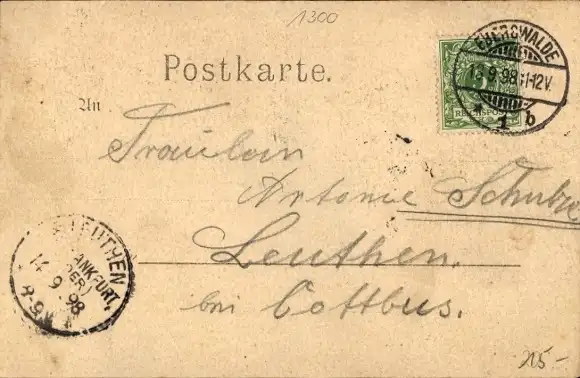 1300
EBERSWALDE
13.9.98.11-12V.
* 1 b
REICHSPOST
Postkarte.
An
Fräulein
Antonie Schulze
Leuthen.
bei Cottbus.
LEUTHEN
FRANKFURT,
(ODER)
14 9 98
8-9
215-